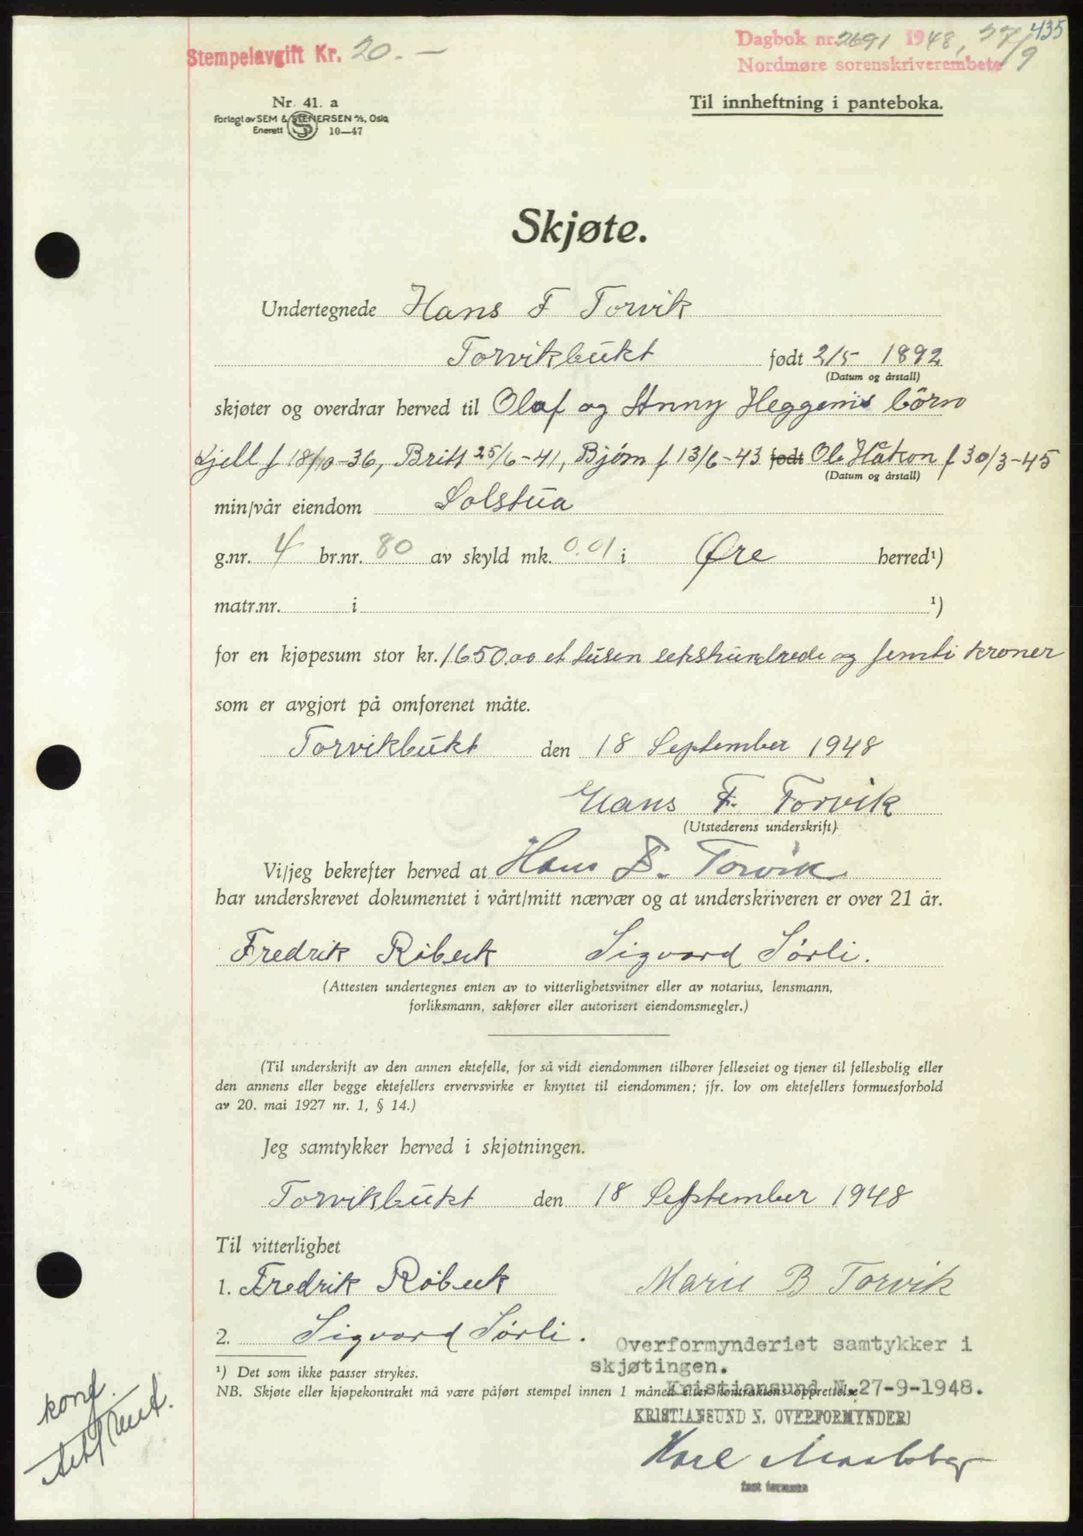 435
Stempelavgift Kr. 20.-
Dagbok nr. 2691 1948, 27/9
Nordmøre sorenskriverembete
Nr. 41. a
Forlagt av SEM & STENERSEN A/S, Oslo
Enerett 10—47
Til innheftning i panteboka.
Skjøte.
Undertegnede Hans F Torvik
Torvikbukt født 2/5 1892
(Datum og årstall)
skjøter og overdrar herved til Olaf og Anny Heggems börn
Kjell f 18/10-36, Britt 25/6-41, Bjørn f 13/6-43 født Ole Håkon f 30/3-45
(Datum og årstall)
min/vår eiendom Solstua
g.nr. 4 br.nr. 80 av skyld mk. 0.01 i Øre herred¹)
matr.nr. i ¹)
for en kjøpesum stor kr. 1650.00 et tusen sekshundrede og femti kroner
som er avgjort på omforenet måte.
Torvikbukt den 18 September 1948
Hans F. Torvik
(Utstederens underskrift)
Vi/jeg bekrefter herved at Hans F. Torvik
har underskrevet dokumentet i vårt/mitt nærvær og at underskriveren er over 21 år.
Fredrik Røbeck Sigvard Sørli.
(Attesten undertegnes enten av to vitterlighetsvitner eller av notarius, lensmann,
forliksmann, sakfører eller autorisert eiendomsmegler.)
(Til underskrift av den annen ektefelle, for så vidt eiendommen tilhører felleseiet og tjener til fellesbolig eller
den annens eller begge ektefellers ervervsvirke er knyttet til eiendommen; jfr. lov om ektefellers formuesforhold
av 20. mai 1927 nr. 1, § 14.)
Jeg samtykker herved i skjøtningen.
Torvikbukt den 18 September 1948
Til vitterlighet
1. Fredrik Røbeck Marie B Torvik
2. Sigvard Sørli.
Overformynderiet samtykker i
skjøtingen.
¹) Det som ikke passer strykes.
NB. Skjøte eller kjøpekontrakt må være påført stempel innen 1 måned etter kontraktens opprettelse
Kristiansund N. 27-9-1948.
KRISTIANSUND N. OVERFORMYNDERI
Karl
fast formann
konf.